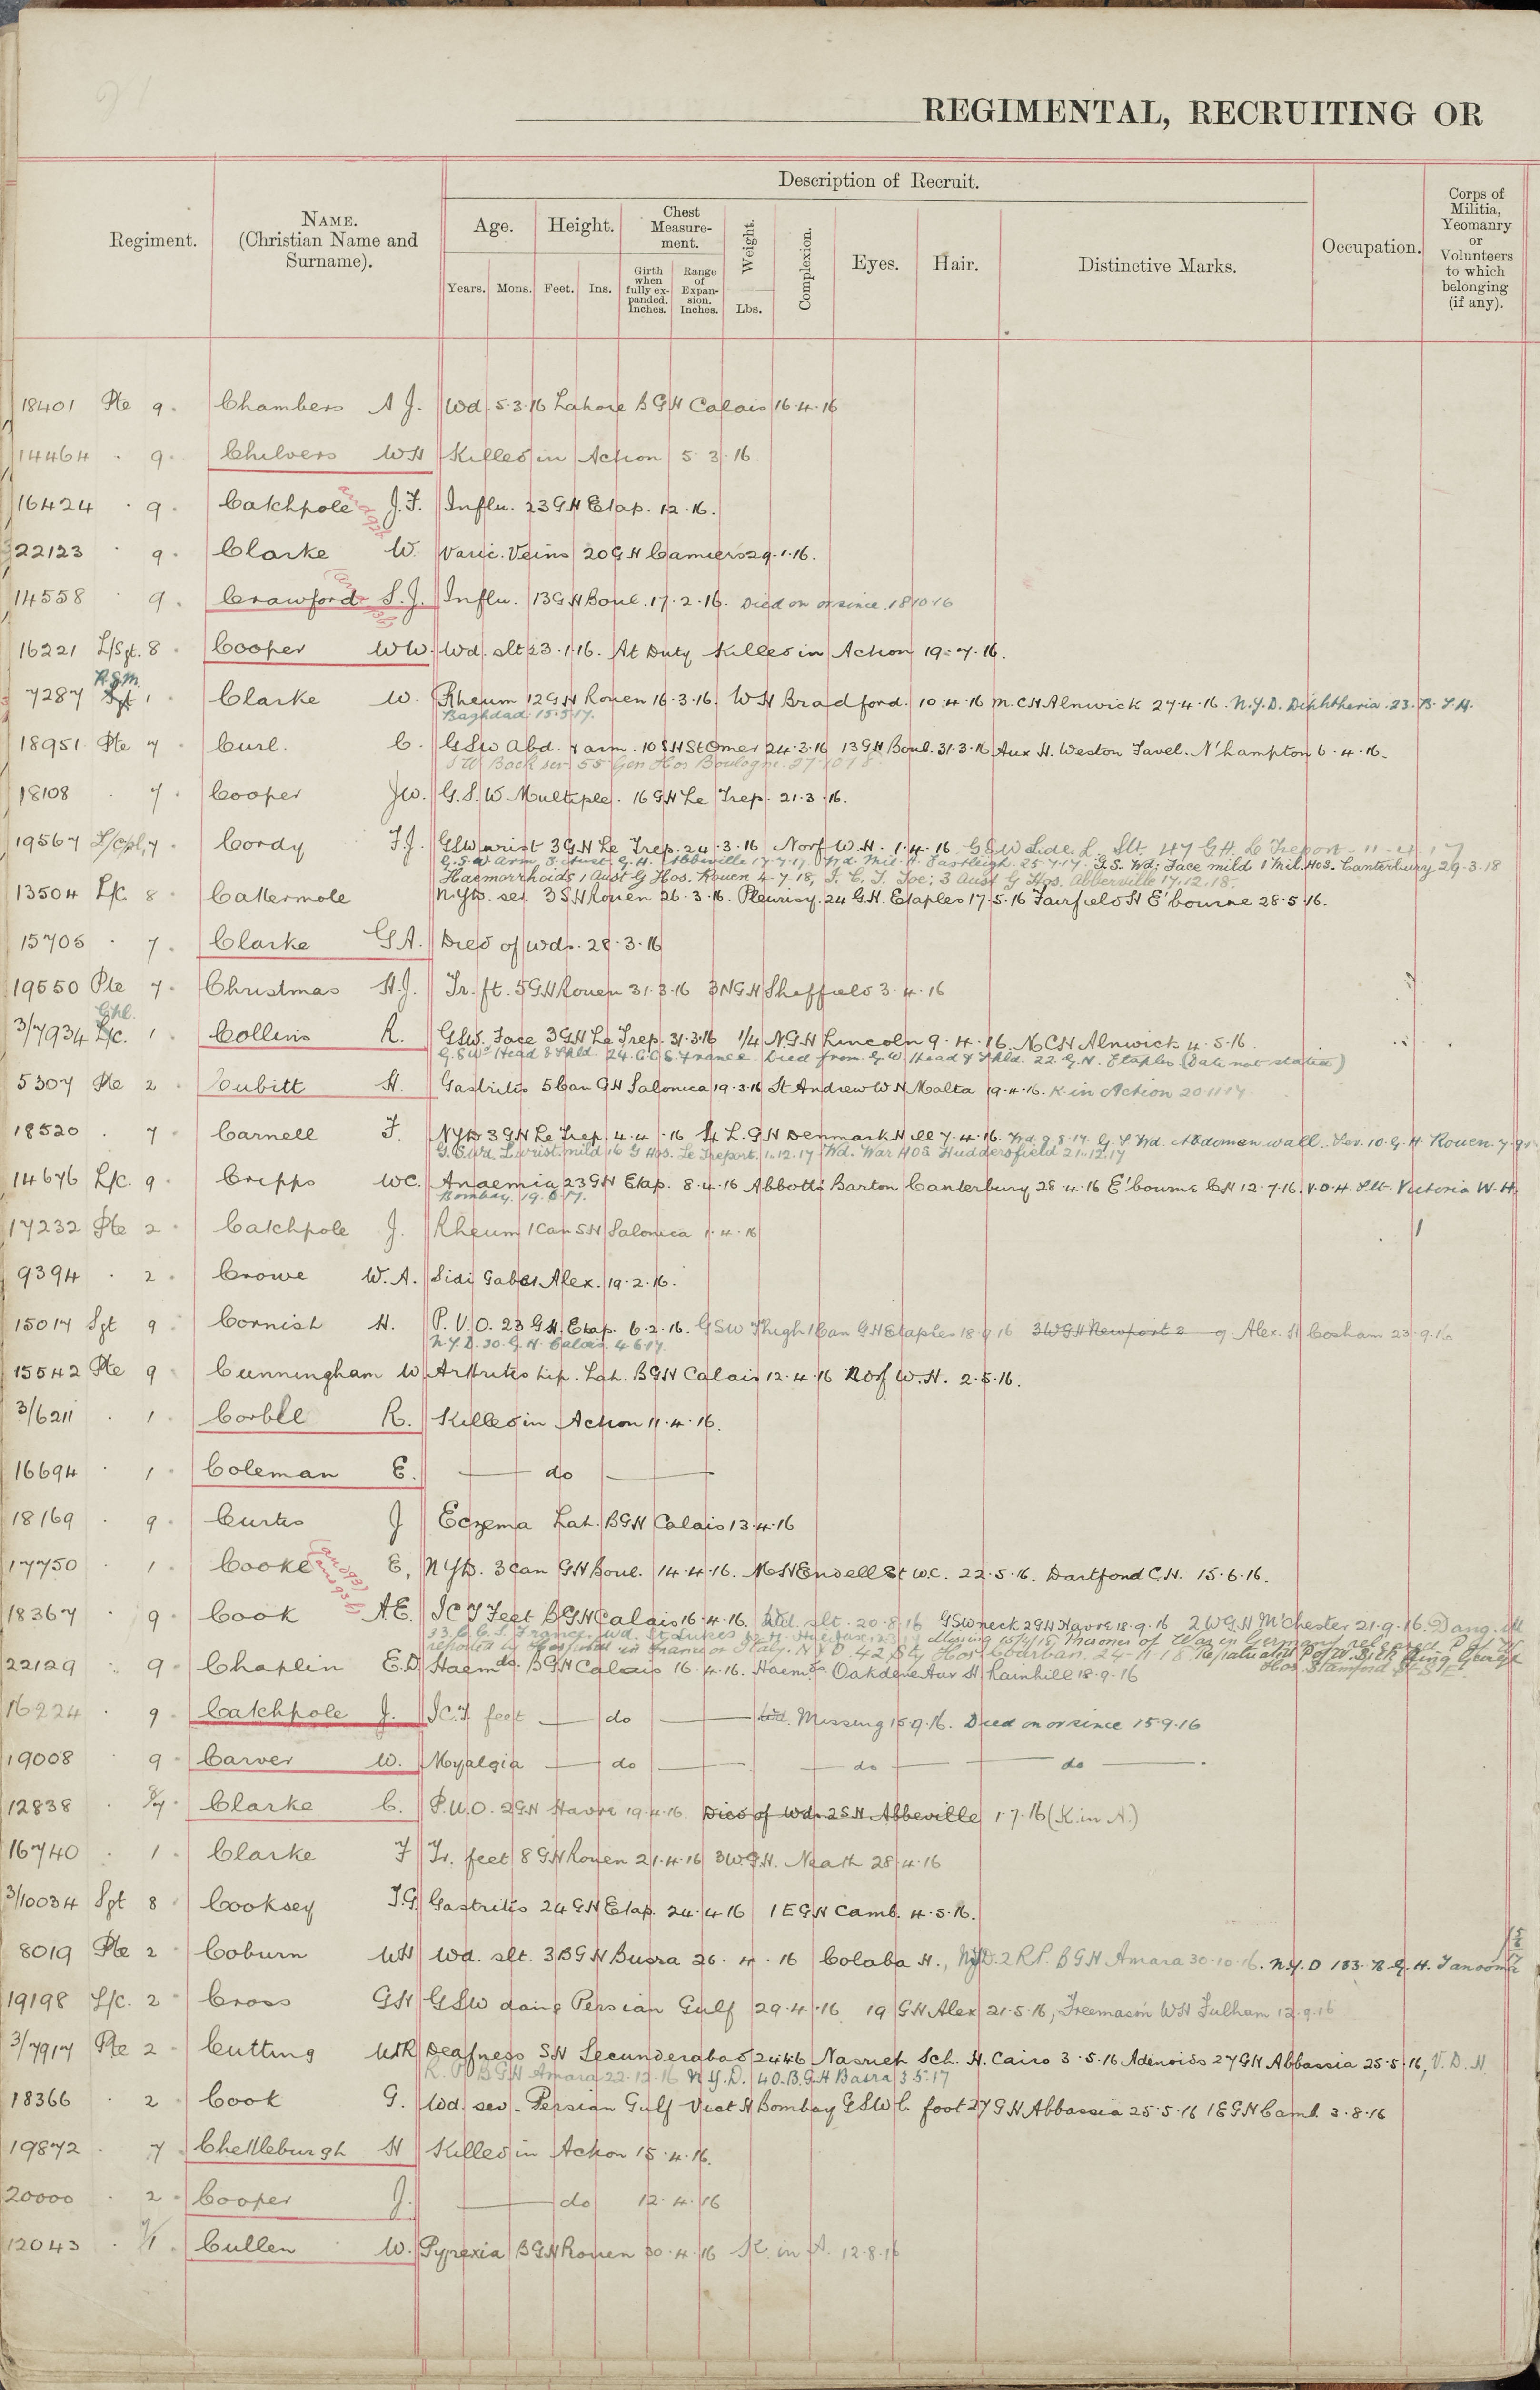 REGIMENTAL, RECRUITING OR
Regiment.
NAME.
(Christian Name and
Surname).
Description of Recruit.
Age.
Height.
Chest
Measure-
ment.
Weight.
Complexion.
Eyes.
Hair.
Distinctive Marks.
Occupation.
Corps of
Militia,
Yeomanry
or
Volunteers
to which
belonging
(if any).
Years.
Mons.
Feet.
Ins.
Girth
when
fully ex-
panded.
Inches.
Range
of
Expan-
sion.
Inches.
Lbs.
18401 Pte 9. Chambers A J. Wd. 5.3.16 Lahore B G H Calais 16.4.16
14464 . 9. Chilvers WH Killed in Action 5 3.16.
16424 . 9. Catchpole J.F. Influ. 23 G H Etap. 12.16.
22123 . 9. Clarke W. Varic. Veins 20 G H Camiers 29.1.16.
14558 . 9. Crawford S.J. Influ. 13 G H Boul. 17.2.16. Died on or since 18 10 16
16221 L/Sgt. 8. Cooper WW. Wd. slt 23.1.16. At Duty Killed in Action 19.7.16.
R.S.M.
7287 Sgt 1. Clarke W. Rheum 12 G H Rouen 16.3.16. W H Bradford. 10.4.16 M.C.H Alnwick 27.4.16. N.Y.D. Diphtheria. 23. B. S.H.
Baghdad 15.5.17.
18951 Pte 7. Curl. C. G S W Abd. & arm. 10 S H St Omer 24.3.16 13 G H Boul. 31.3.16 Aux H. Weston Favel. N'hampton 6.4.16.
S W Back sev 55 Gen Hos Boulogne. 27.10.18
18108 . 7. Cooper J W. G.S.W Multiple. 16 G H Le Trep. 21.3.16.
19567 L/Cpl. 7. Cordy F.J. GSW wrist 3 G H Le Trep. 24.3.16 Norf W.H. 1.4.16 G S W Side L Slt. 47 G H. Le Treport 11.4.17
G.S.W Arm, 3. Aust. G. H. Abbeville 17.7.17 Wd. Mil. H. Eastleigh. 25.7.17. G.S. Wd; Face mild 1 Mil. Hos. Canterbury 29.3.18
Haemorrhoids 1 Aust G Hos. Rouen 4.7.18, I. C. T. Toe; 3 Aust G Hos. Abbeville 17.12.18.
13504 L/C. 8 Cattermole N.Y.D. sev. 3 S H Rouen 26.3.16. Pleurisy. 24 G.H. Etaples 17.5.16 Fairfield H E'bourne 28.5.16.
15705 . 7. Clarke G A. Died of Wds. 28.3.16
19550 Pte 7. Christmas H.J. Tr. ft. 5 G H Rouen 31.3.16 3 N G H Sheffield 3.4.16
Cpl.
3/7934 L/C. 1. Collins R. GSW. Face 3 G H Le Trep. 31.3.16 1/4 N.G H Lincoln 9.4.16. M C H Alnwick 4.5.16.
G.S.Wd Head & Shld. 24. C.C.S. France. Died from G W Head & Shld. 22. G.H. Etaples (Date not stated)
5307 Pte 2 Cubitt H. Gastritis 5 Can G H Salonica 19.3.16 St Andrew W H Malta 19.4.16. K. in Action 20.11.17.
18520 . 7. Carnell F. NYD 3 G H Le Trep. 4.4.16 4 L. G H Denmark Hill 7.4.16. Wd. 9.8.17. G. S Wd. Abdomen wall. Sev. 10. G. H. Rouen.
G.S.Wd. L. wrist mild 16 G Hos. Le Treport. 1.12.17 Wd. War Hos Huddersfield 21.12.17
14676 L/C. 9. Cripps WC. Anaemia 23 G H Etap. 8.4.16 Abbotts Barton Canterbury 28.4.16 E'bourne C H 12.7.16. V.D.H. Slt. Victoria W. H.
Bombay. 19.6.17.
17232 Pte 2. Catchpole J. Rheum 1 Can S H Salonica 1.4.16
9394 . 2. Crowe W. A. Sidi Gaber Alex. 19.2.16.
15017 Sgt 9. Cornish H. P.U.O. 23 G H. Etap. 6.2.16. GSW Thigh 1 Can G H Etaples 18.9.16 3 W G H Newport 2 9 Alex. H Cosham 23.9.16
N.Y.D. 30. G.H. Calais. 4 6 17.
15542 Pte 9. Cunningham W. Arthritis hip. Lah. B G H Calais 12.4.16 Norf W.H. 2.5.16.
3/6211 . 1. Corbll R. Killed in Action 11.4.16.
16694 . 1. Coleman E. do
18169 . 9. Curtis J Eczema Lah. B G H Calais 13.4.16
17750 . 1. Cooke E. NYD. 3 Can G H Boul. 14.4.16. M H Endell St W.C. 22.5.16. Dartford C.H. 15.6.16.
18367 . 9. Cook AE. I C T Feet B G H Calais 16.4.16. Wd. slt. 20.8.16 GSW neck 2 G H Havre 18.9.16 2 W G H M'Chester 21.9.16.
33 C.C.S. France. Wd. St Lukes Halifax Missing Prisoner of War in Germany released P of W
reported in Hospital in France or Italy. N Y D. 42 Sty Hos Charban. 24.11.18. Repatiated P of W Sick King George
Hos. Stamford St S.E.
22129 . 9. Chaplin E.D. Haemds. B G H Calais 16.4.16. Haemds. Oakdene Aux H Rainhill 18.9.16
16224 . 9. Catchpole J. I C.T. feet do Wd. Missing 15.9.16. Died on or since 15.9.16
19008 9. Carver W. Myalgia do do do
12838 . 8/7. Clarke C. P.U.O. 2 G H Havre 19.4.16. Died of Wds. 2 S H Abbeville 1.7.16 (K. in A.)
16740 . 1. Clarke F Tr. feet 8 G H Rouen 21.4.16 3 W.G.H. Neath 28.4.16
3/10034 Sgt 8 Cooksey T.G. Gastritis 24 G H Etap. 24.4.16 1 E G H Camb. 4.5.16.
8019 Pte 2. Coburn WH Wd. slt. 3 B G H Busra 26.4.16 Colaba H., NYD. 2 R.P. B G H Amara 30.10.16. N.Y.D 133. B. G. H. Tanooma
19198 L/C. 2. Cross GH GSW Persian Gulf 29.4.16 19 G H Alex 21.5.16, Freemason W H Fulham 12.9.16
3/7917 Pte 2. Cutting WR Deafness S H Secunderabad 2446 Nasrieh Sch. H. Cairo 3.5.16 Adenoids 27 G H Abbassia 25.5.16, V. D. H
R. P B G H Amara 22.12.16 N.Y.D. 40. B. G. H Basra 3.5.17
18366 . 2 Cook G. Wd. sev. Persian Gulf Vict H Bombay GSW L foot 27 G H Abbassia 25.5.16 1 E G H Camb. 3.8.16
19872 . 7 Chettleburgh H Killed in Action 15.4.16.
20000 . 2. Cooper J. do 12.4.16
12043 . 7/1. Cullen W. Pyrexia B G H Rouen 30.4.16 K. in A. 12.8.16